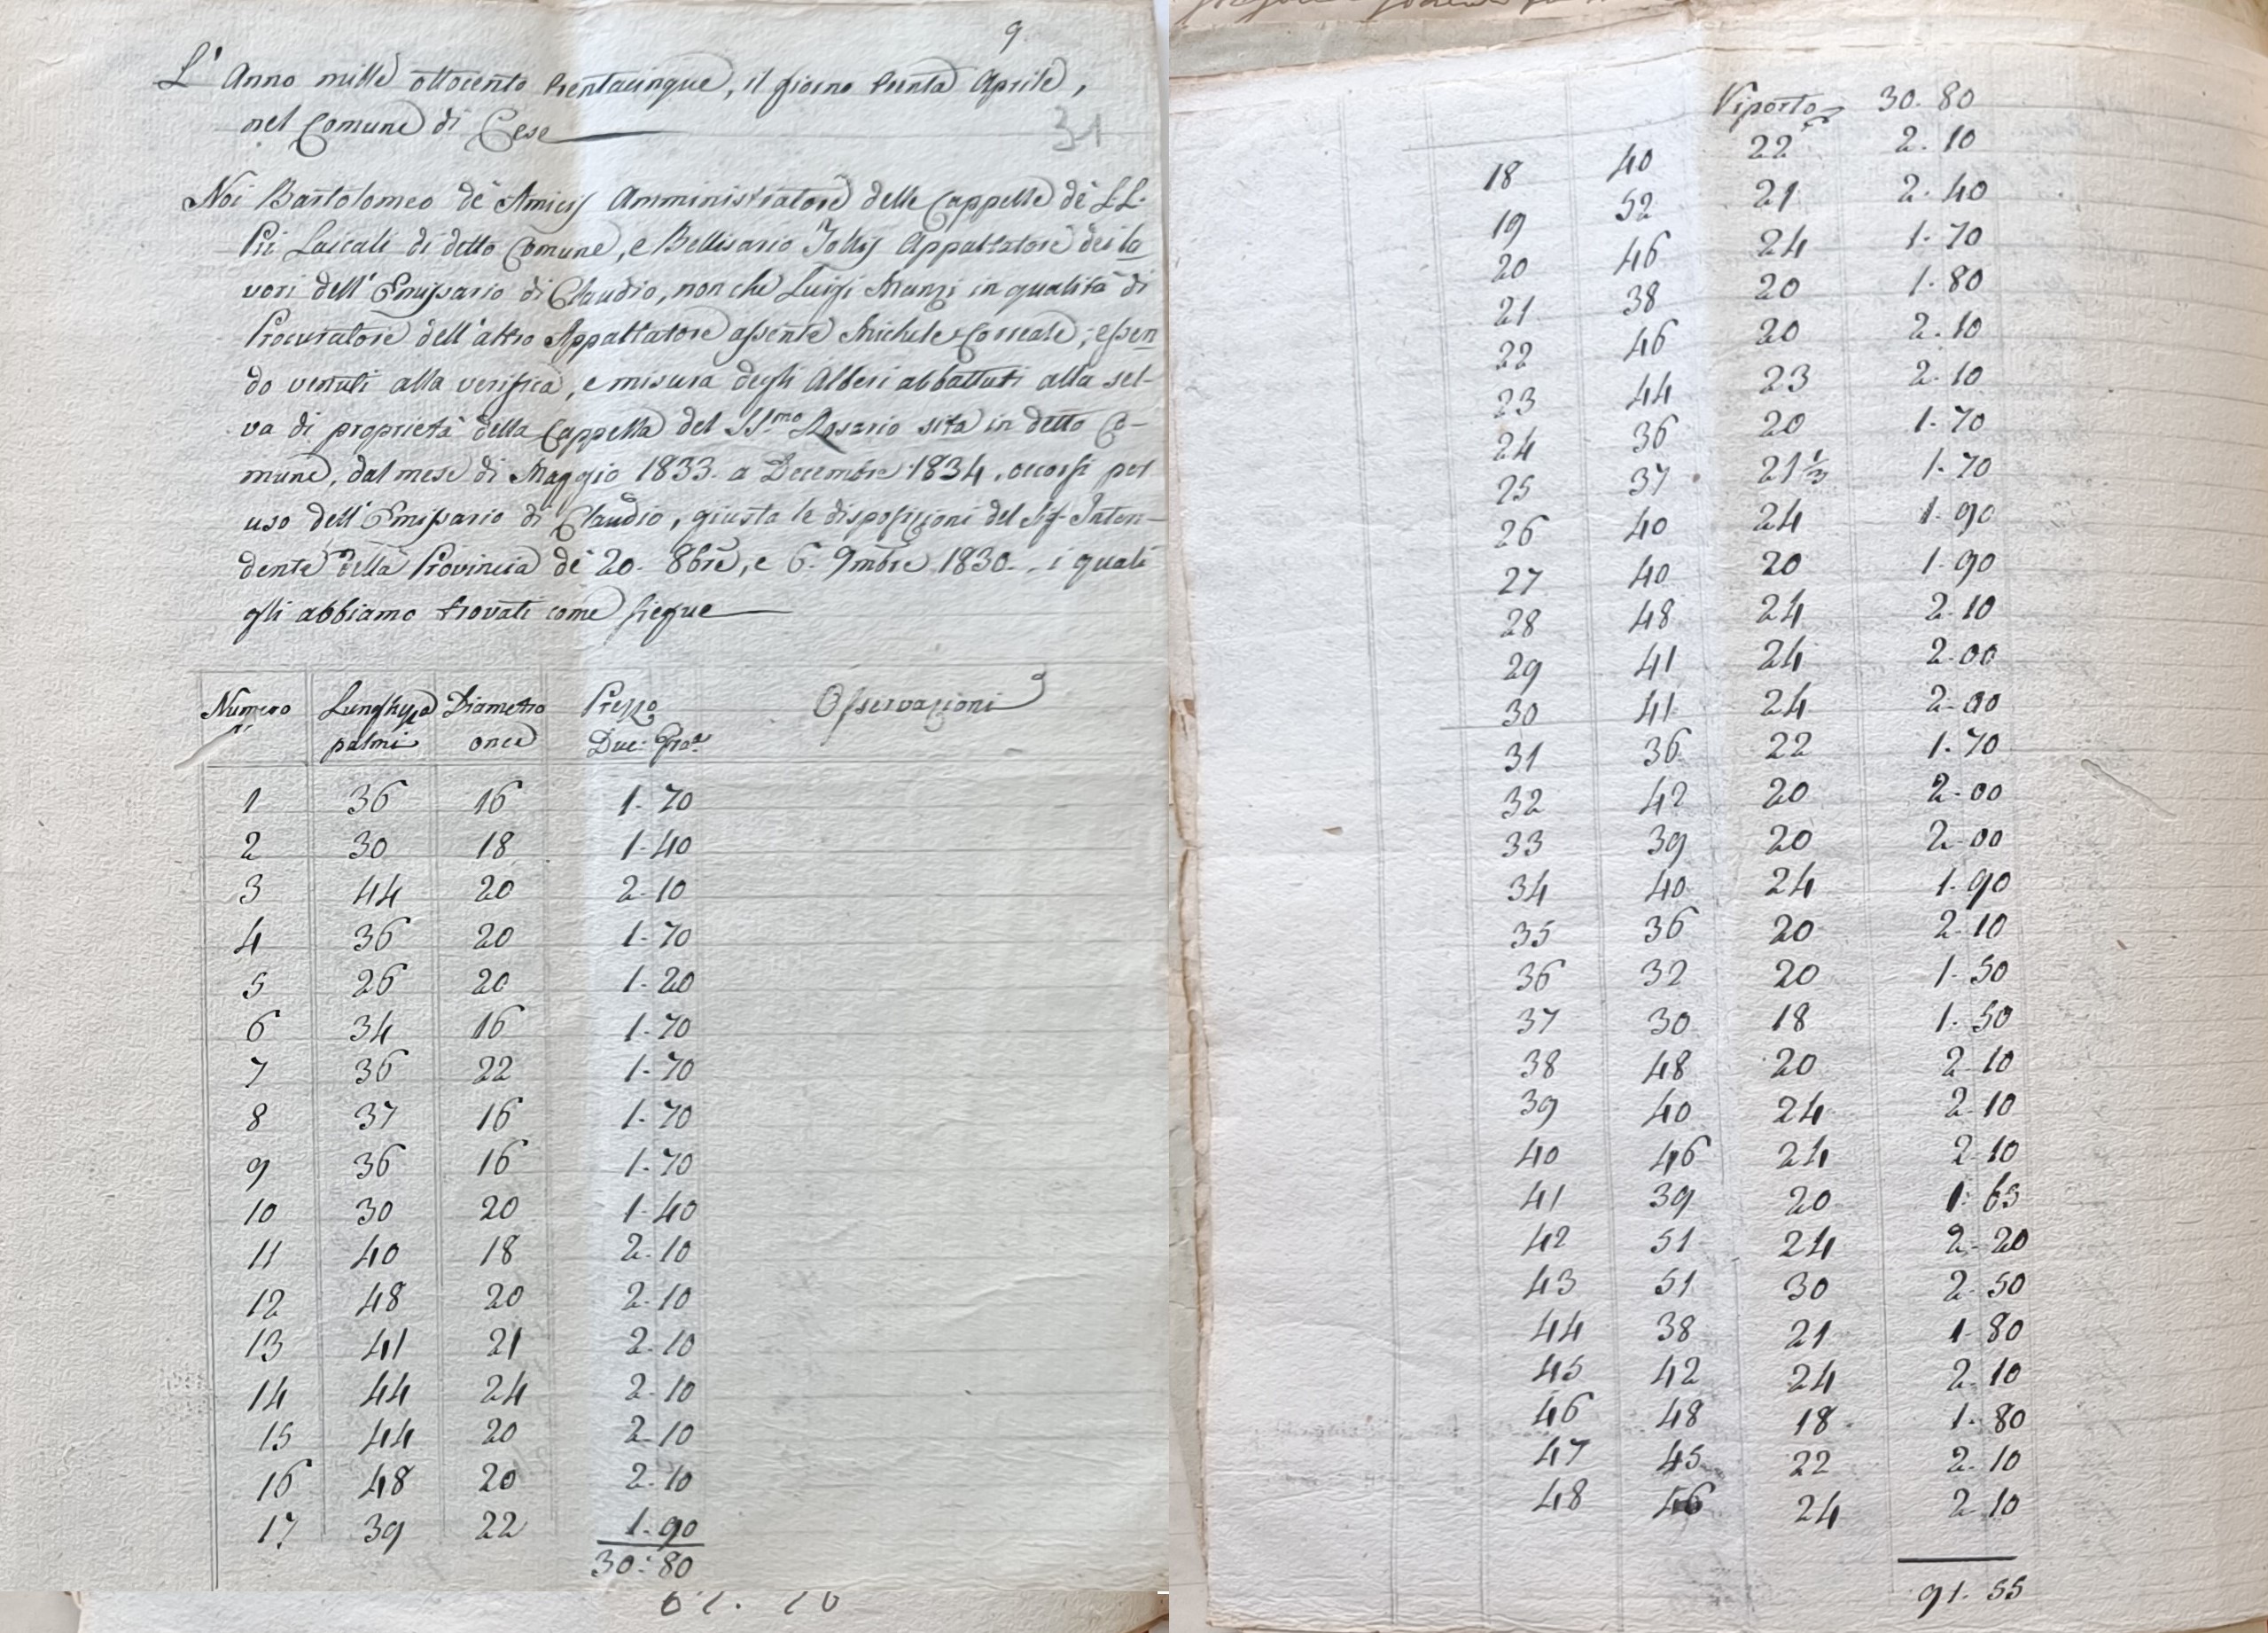 9
L' Anno mille ottocento trentacinque, il giorno trenta Aprile,
nel Comune di Cese
31
Noi Bartolomeo de Amicis Amministratore delle Cappelle de LL.
Pii Laicali di detto Comune, e Bellisario Appaltatore dei la
vori dell'Emissario di Claudio, non che Luigi in qualità di
Procuratore dell'altro Appaltatore assente Michele Correale; essen
do venuti alla verifica, e misura degli Alberi abbattuti alla sel-
va di proprietà della Cappella del SS.mo Rosario sita in detto Co-
mune, dal mese di Maggio 1833. a Decembre 1834, occorsi per
uso dell'Emissario di Claudio, giusta le disposizioni del Sig. Inten-
dente della Provincia de 20. 8bre, e 6. 9mbre 1830., i quali
gli abbiamo trovati come siegue
Numero Lunghezza Diametro Prezzo Osservazioni
palmi once Duc: Gra:
1 36 16 1.70
2 30 18 1.40
3 44 20 2.10
4 36 20 1.70
5 26 20 1.20
6 34 16 1.70
7 36 22 1.70
8 37 16 1.70
9 36 16 1.70
10 30 20 1.40
11 40 18 2.10
12 48 20 2.10
13 41 21 2.10
14 44 24 2.10
15 44 20 2.10
16 48 20 2.10
17 39 22 1.90
30:80
Riporto 30.80
18 40 22 2.10
19 52 21 2.40
20 46 24 1.70
21 38 20 1.80
22 46 20 2.10
23 44 23 2.10
24 36 20 1.70
25 37 21 1.70
26 40 24 1.90
27 40 20 1.90
28 48 24 2.10
29 41 24 2.00
30 41 24 2.00
31 36 22 1.70
32 42 20 2.00
33 39 20 2.00
34 40 24 1.90
35 36 20 2.10
36 32 20 1.50
37 30 18 1.50
38 48 20 2.10
39 40 24 2.10
40 46 24 2.10
41 39 20 1.65
42 51 24 2.20
43 51 30 2.50
44 38 21 1.80
45 42 24 2.10
46 48 18 1.80
47 45 22 2.10
48 46 24 2.10
91.55